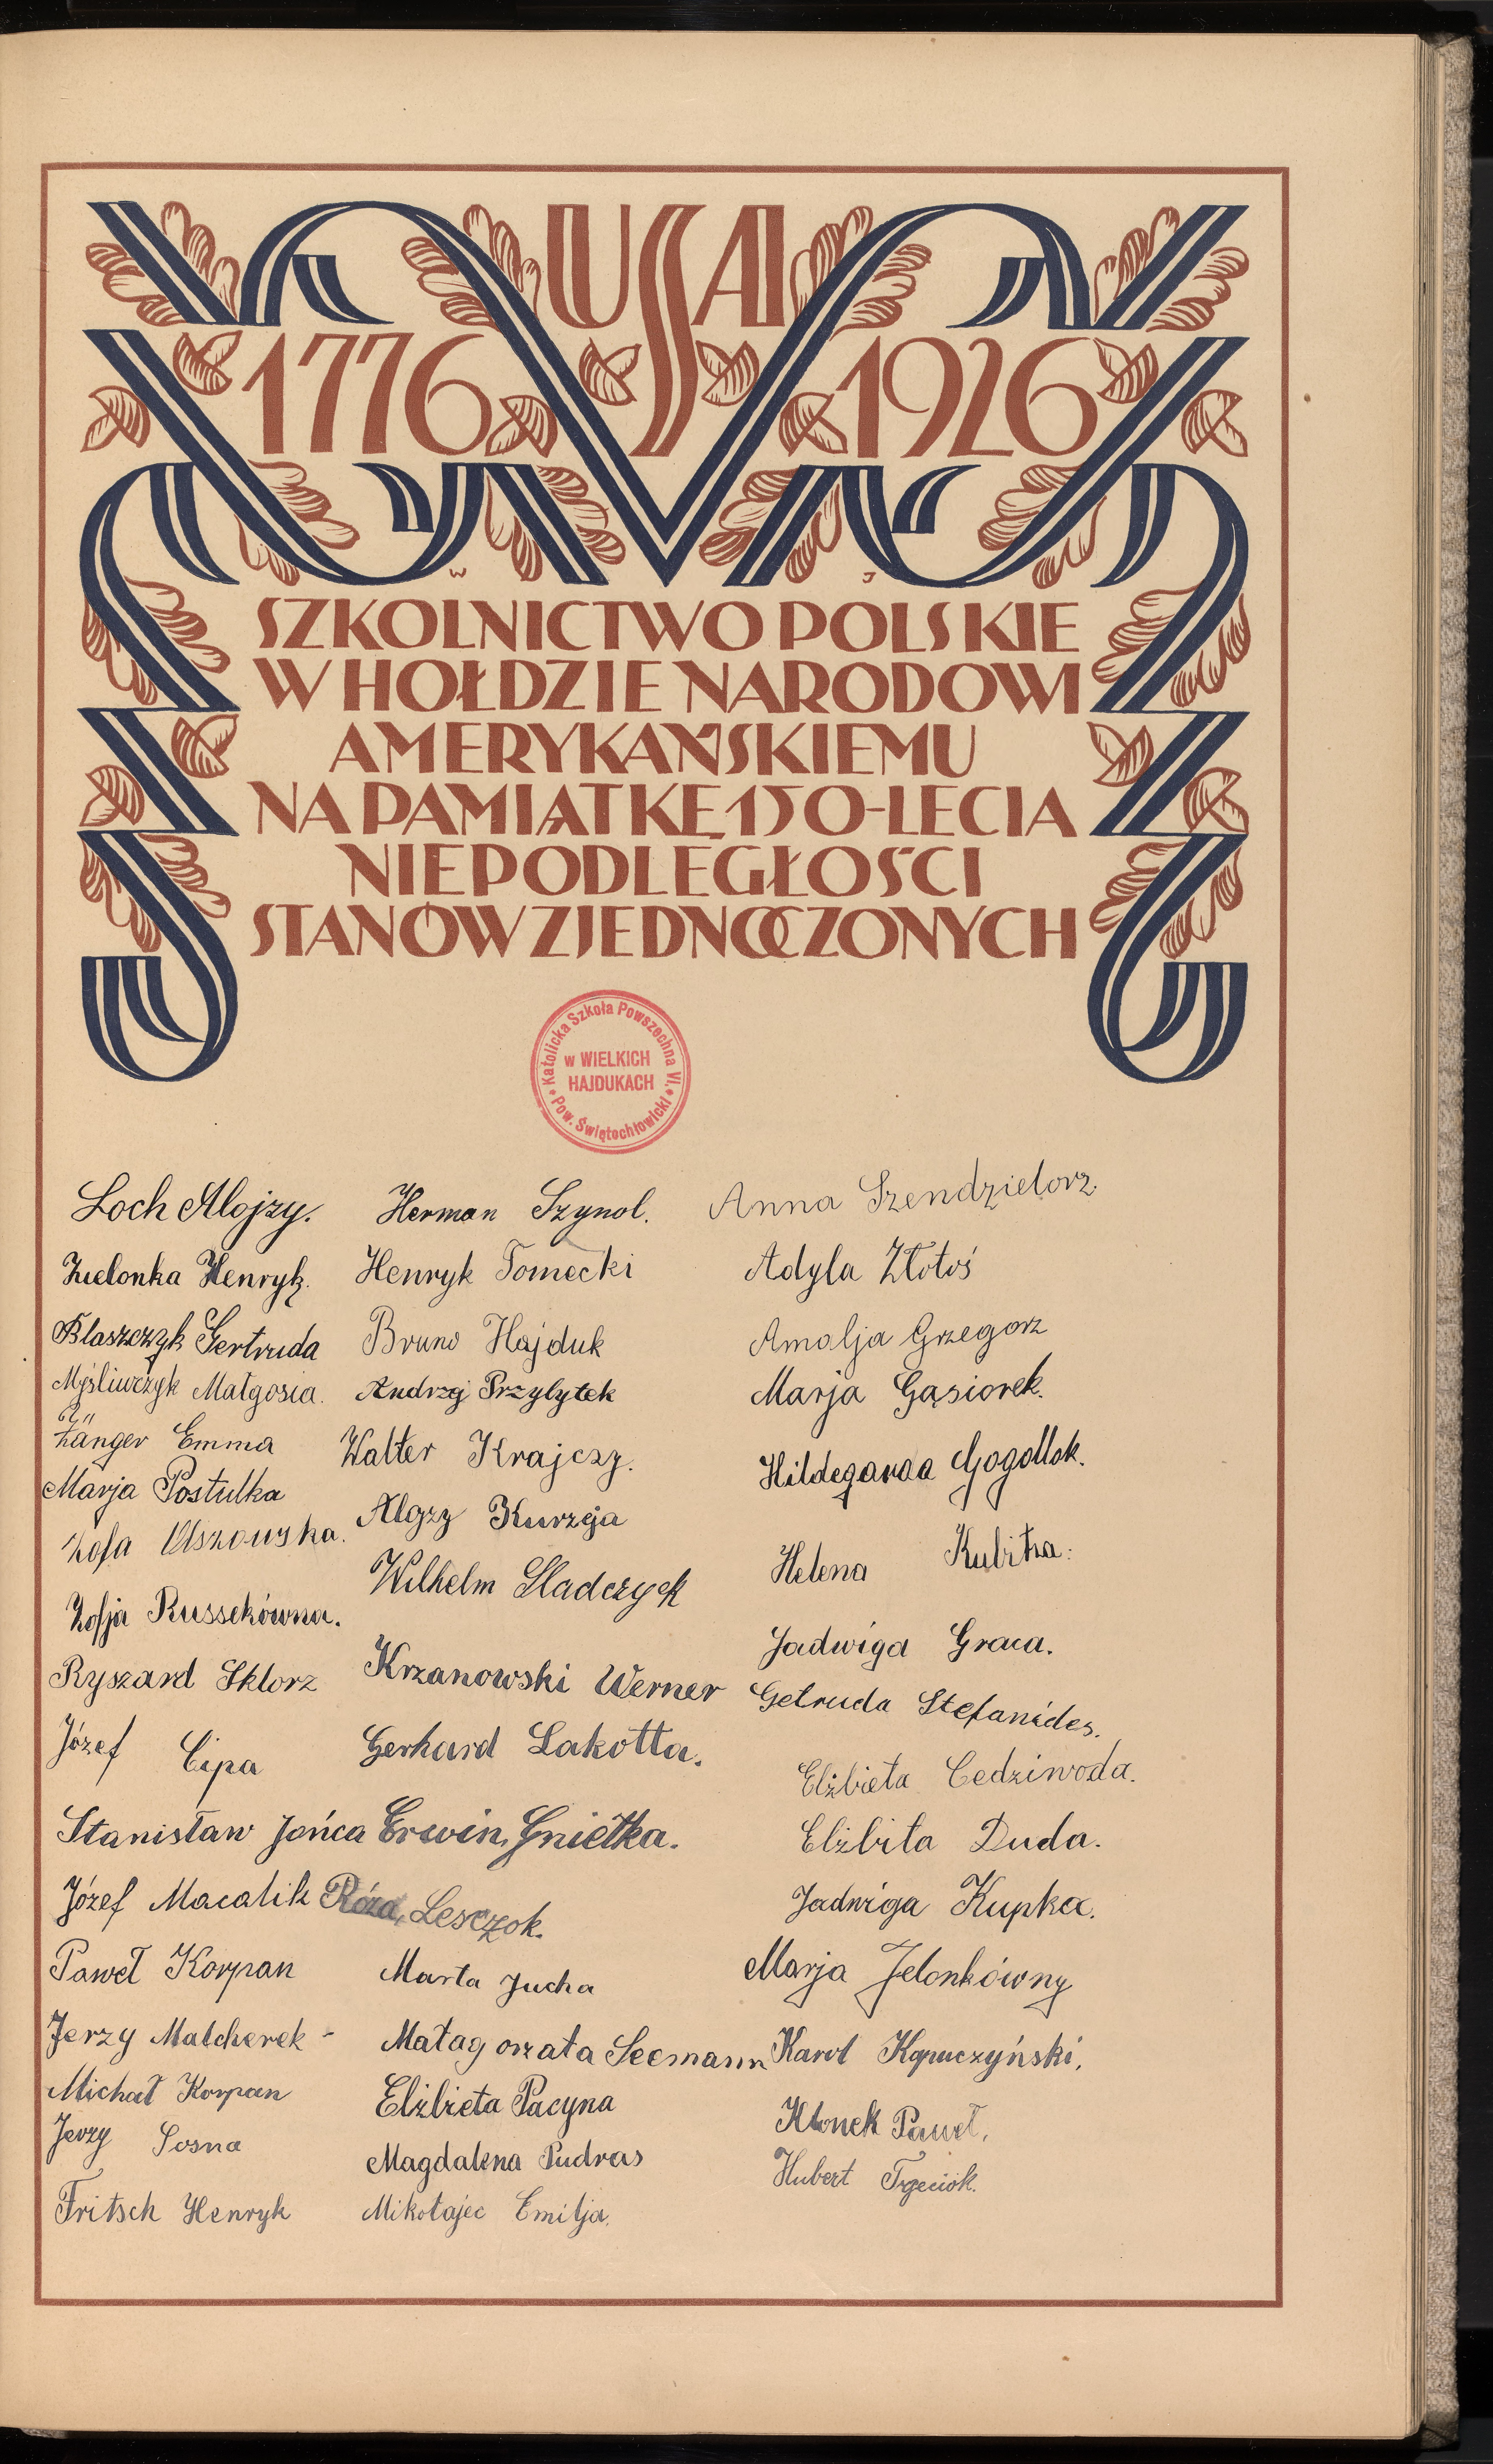 USA
1776 1926
W J
SZKOLNICTWO POLSKIE
W HOŁDZIE NARODOWI
AMERYKAŃSKIEMU
NA PAMIĄTKĘ 150-LECIA
NIEPODLEGŁOŚCI
STANÓW ZJEDNOCZONYCH
Katolicka Szkoła Powszechna VI.
w WIELKICH
HAJDUKACH
Pow. Świętochłowicki
Loch Alojzy.
Zielonka Henryk.
Blaszczyk Gertruda
Myśliwczyk Małgosia.
Zänger Emma
Marja Postulka
Zofja Russekówna.
Ryszard Sklorz
Józef Cipa
Stanisław Jońca
Józef Macalik
Paweł Korpan
Jerzy Malcherek -
Michał Korpan
Jerzy Sosna
Fritsch Henryk
Herman Szynol.
Henryk Tomecki
Bruno Hajduk
Andrzej Przylytek
Walter Krajczy.
Alojzy Kurzeja
Wilhelm Sladczyk
Krzanowski Werner
Gerhard Lakotta.
Erwin, Gniełka.
Róża, Lesczok.
Marta Jucha
Małagorzata Seemann
Elżbieta Pacyna
Magdalena Pudras
Mikołajec Emilja.
Anna Szendzielorz.
Adyla Złotoś
Amalja Grzegorz
Marja Gąsiorek.
Hildegarda Gogollok.
Helena
Jadwiga Graca.
Getruda Stefanides.
Elżbieta Cedziwoda.
Elżbita Duda.
Jadwiga Kupka.
Marja Jelonkówny
Karol Kapuczyński,
Klonek Paweł,
Hubert